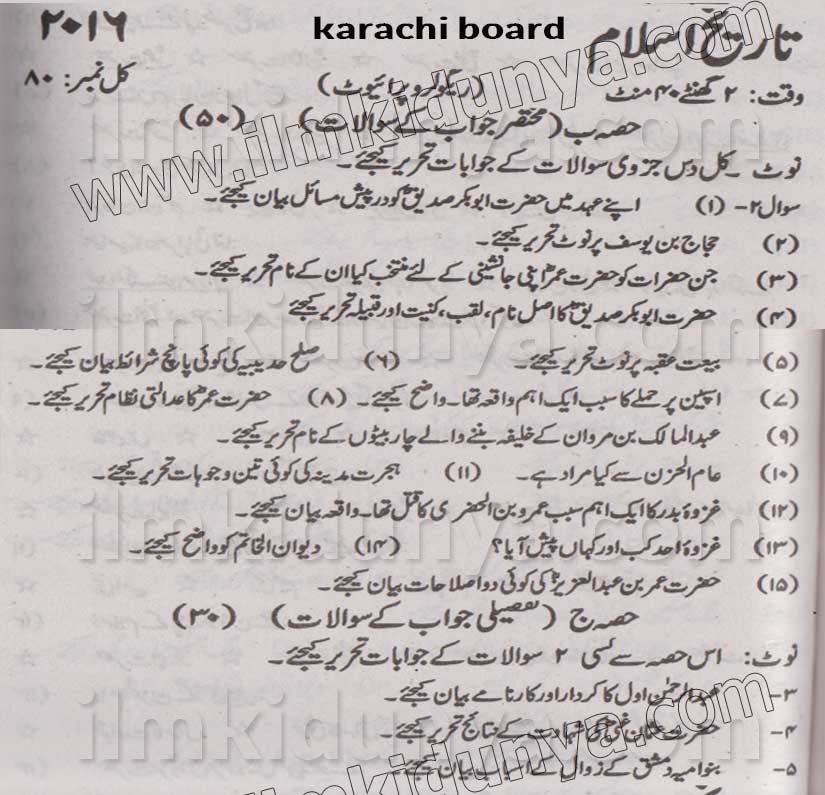 karachi board
تاریخ اسلام ۲۰۱۶
وقت: ۲ گھنٹے ۴۰ منٹ (ریگولر و پرائیوٹ) کل نمبر: ۸۰
حصہ ب (مختصر جواب کے سوالات) (۵۰)
نوٹ ۔ کل دس جزوی سوالات کے جوابات تحریر کیجئے۔
سوال ۲- (۱) اپنے عہد میں حضرت ابوبکر صدیقؓ کو درپیش مسائل بیان کیجئے۔
(۲) حجاج بن یوسف پر نوٹ تحریر کیجئے۔
(۳) جن حضرات کو حضرت عمرؓ اپنی جانشینی کے لئے منتخب کیا ان کے نام تحریر کیجئے۔
(۴) حضرت ابوبکر صدیقؓ کا اصل نام، لقب، کنیت اور قبیلہ تحریر کیجئے
(۵) بیعت عقبہ پر نوٹ تحریر کیجئے۔ (۶) صلح حدیبیہ کی کوئی پانچ شرائط بیان کیجئے۔
(۷) اسپین پر حملے کا سبب ایک اہم واقعہ تھا۔ واضح کیجئے۔ (۸) حضرت عمرؓ کا عدالتی نظام تحریر کیجئے۔
(۹) عبدالمالک بن مروان کے خلیفہ بننے والے چار بیٹوں کے نام تحریر کیجئے۔
(۱۰) عام الحزن سے کیا مراد ہے۔ (۱۱) ہجرت مدینہ کی کوئی تین وجوہات تحریر کیجئے۔
(۱۲) غزوۂ بدر کا ایک اہم سبب عمرو بن الحضری کا قتل تھا۔ واقعہ بیان کیجئے۔
(۱۳) غزوۂ احد کب اور کہاں پیش آیا؟ (۱۴) دیوان الخاتم کو واضح کیجئے۔
(۱۵) حضرت عمر بن عبدالعزیزؒ کی کوئی دو اصلاحات بیان کیجئے۔
حصہ ج (تفصیلی جواب کے سوالات) (۳۰)
نوٹ: اس حصہ سے کسی ۲ سوالات کے جوابات تحریر کیجئے۔
۳- عبدالرحمٰن اول کا کردار اور کارنامے بیان کیجئے۔
۴- حضرت عثمان غنیؓ کی شہادت کے نتائج تحریر کیجئے۔
۵- بنو امیہ دمشق کے زوال کے اسباب بیان کیجئے۔
www.ilmkidunya.com
ilmkidunya.com
ilmkidunya.com
ilmkidunya.com
ilmkidunya.com
ilmkidunya.com
ilmkidunya.com